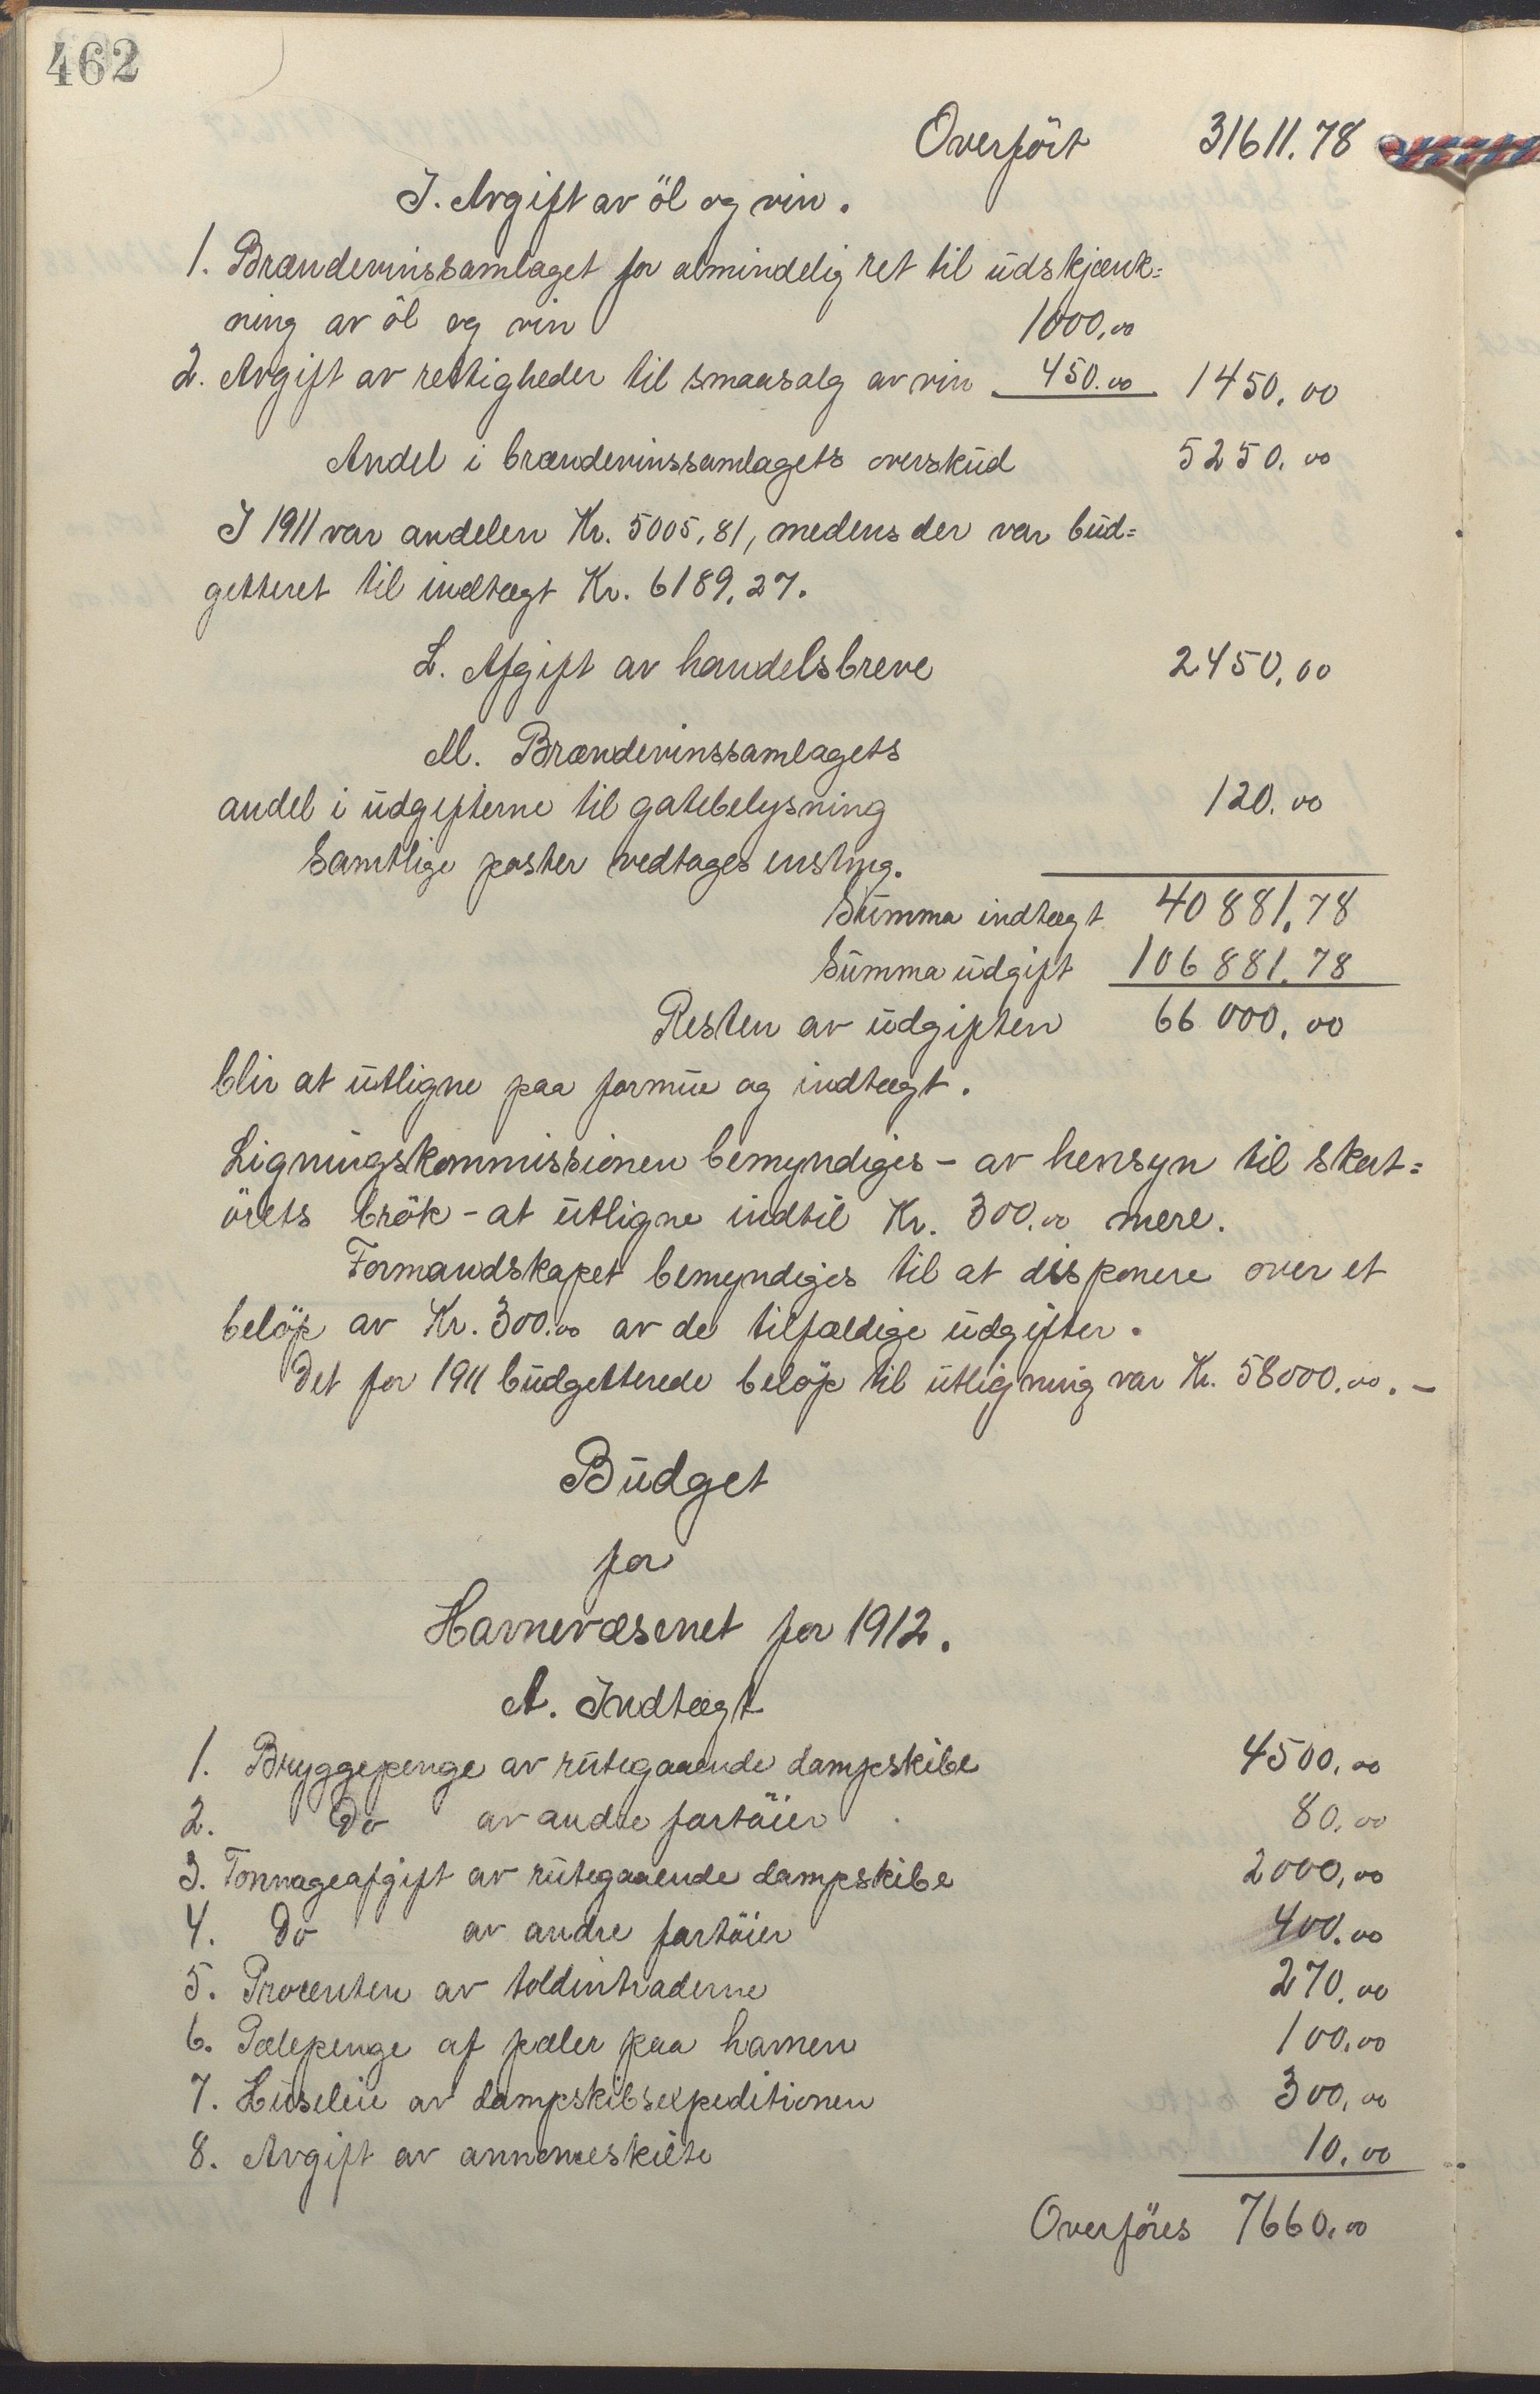 462
Overfört 31611.78
J. Avgift av öl og vin.
1. Brændevinssamlaget for almindelig ret til udskjænk=
ning av öl og vin 1000,00
2. Avgift av rettigheder til smaasalg av vin 450.00 1450,00
Andel i brændevinssamlagets overskud 5250.00
I 1911 var andelen Kr. 5005,81, medens der var bud=
getteret til indtægt Kr. 6189,27.
L. Afgift av handelsbreve 2450,00
M. Brændevinssamlagets
andel i udgifterne til gatebelysning 120.00
Samtlige poster vedtages enstmg.
Summa indtægt 40881,78
Summa udgift 106881.78
Resten av udgiften 66000,00
blir at utligne paa formue og indtægt.
Ligningskommissionen bemyndiges - av hensyn til skat=
örets brök - at utligne indtil Kr. 300.00 mere.
Formandskapet bemyndiges til at disponere over et
belöp av Kr. 300.00 av de tilfældige udgifter.
Det for 1911 budgetterede belöp til utligning var Kr. 58000.00. -
Budget
for
Havnevæsenet for 1912.
A. Indtægt
1. Bryggepenge av rutegaaende dampskibe 4500,00
2. Do av andre fartöier 80,00
3. Tonnageafgift av rutegaaende dampskibe 2000,00
4. Do av andre fartöier 400.00
5. Procenten av toldintraderne 270,00
6. Pælepenge af pæler paa havnen 100,00
7. Husleie av dampskibsexpeditionen 300,00
8. Avgift av annonceskilte 10,00
Overföres 7660,00